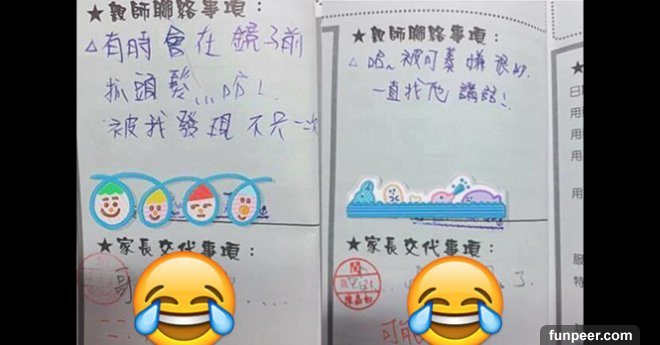 ★教師聯絡事項：
△有時會在鏡子前
抓頭髮...哈！
被我發現不只一次
★家長交代事項：
哥
★教師聯絡事項：
△哈~被可蓁嫌很吵.
一直找他講話！
★家長交代事項：
閱
了
可能
★
日
用
用
用
服
特
funpeer.com